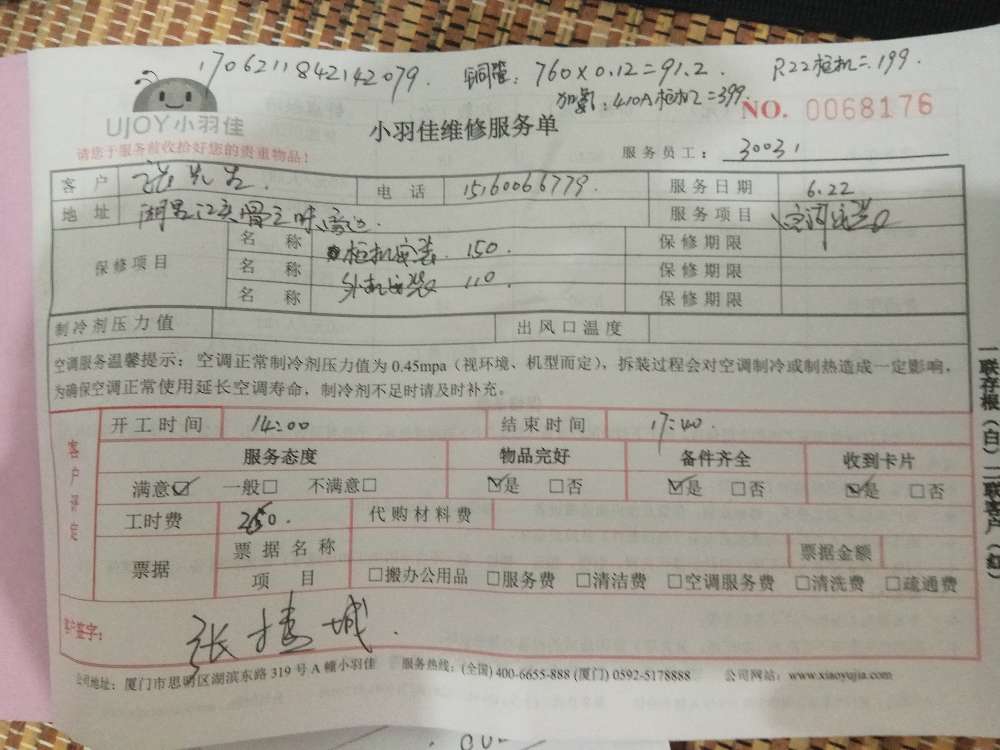 1706211842142079. 铜管：760×0.12=91.2. R22柜机=199.
加氟：410A柜机=399.
UJOY小羽佳
小羽佳维修服务单
NO. 0068176
请您于服务前收拾好您的贵重物品！
服务员工： 30031
客户 张先生. 电话 15160066779. 服务日期 6.22
地址 服务项目 空调安装
保修项目 名称 柜机安装. 150. 保修期限
名称 外机安装 110. 保修期限
名称 保修期限
制冷剂压力值 出风口温度
空调服务温馨提示：空调正常制冷剂压力值为 0.45mpa（视环境、机型而定），拆装过程会对空调制冷或制热造成一定影响，
为确保空调正常使用延长空调寿命，制冷剂不足时请及时补充。
客户评定
开工时间 14:00 结束时间 17:00.
服务态度 物品完好 备件齐全 收到卡片
满意☑ 一般□ 不满意□ ☑是 □否 ☑是 □否 ☑是 □否
工时费 代购材料费
票据 票据名称 票据金额
项目 □搬办公用品 □服务费 □清洁费 □空调服务费 □清洗费 □疏通费
客户签字：
公司地址：厦门市思明区湖滨东路 319 号 A 幢小羽佳 服务热线：(全国) 400-6655-888 (厦门) 0592-5178888 公司网站：www.xiaoyujia.com
一联存根（白）二联客户（红）